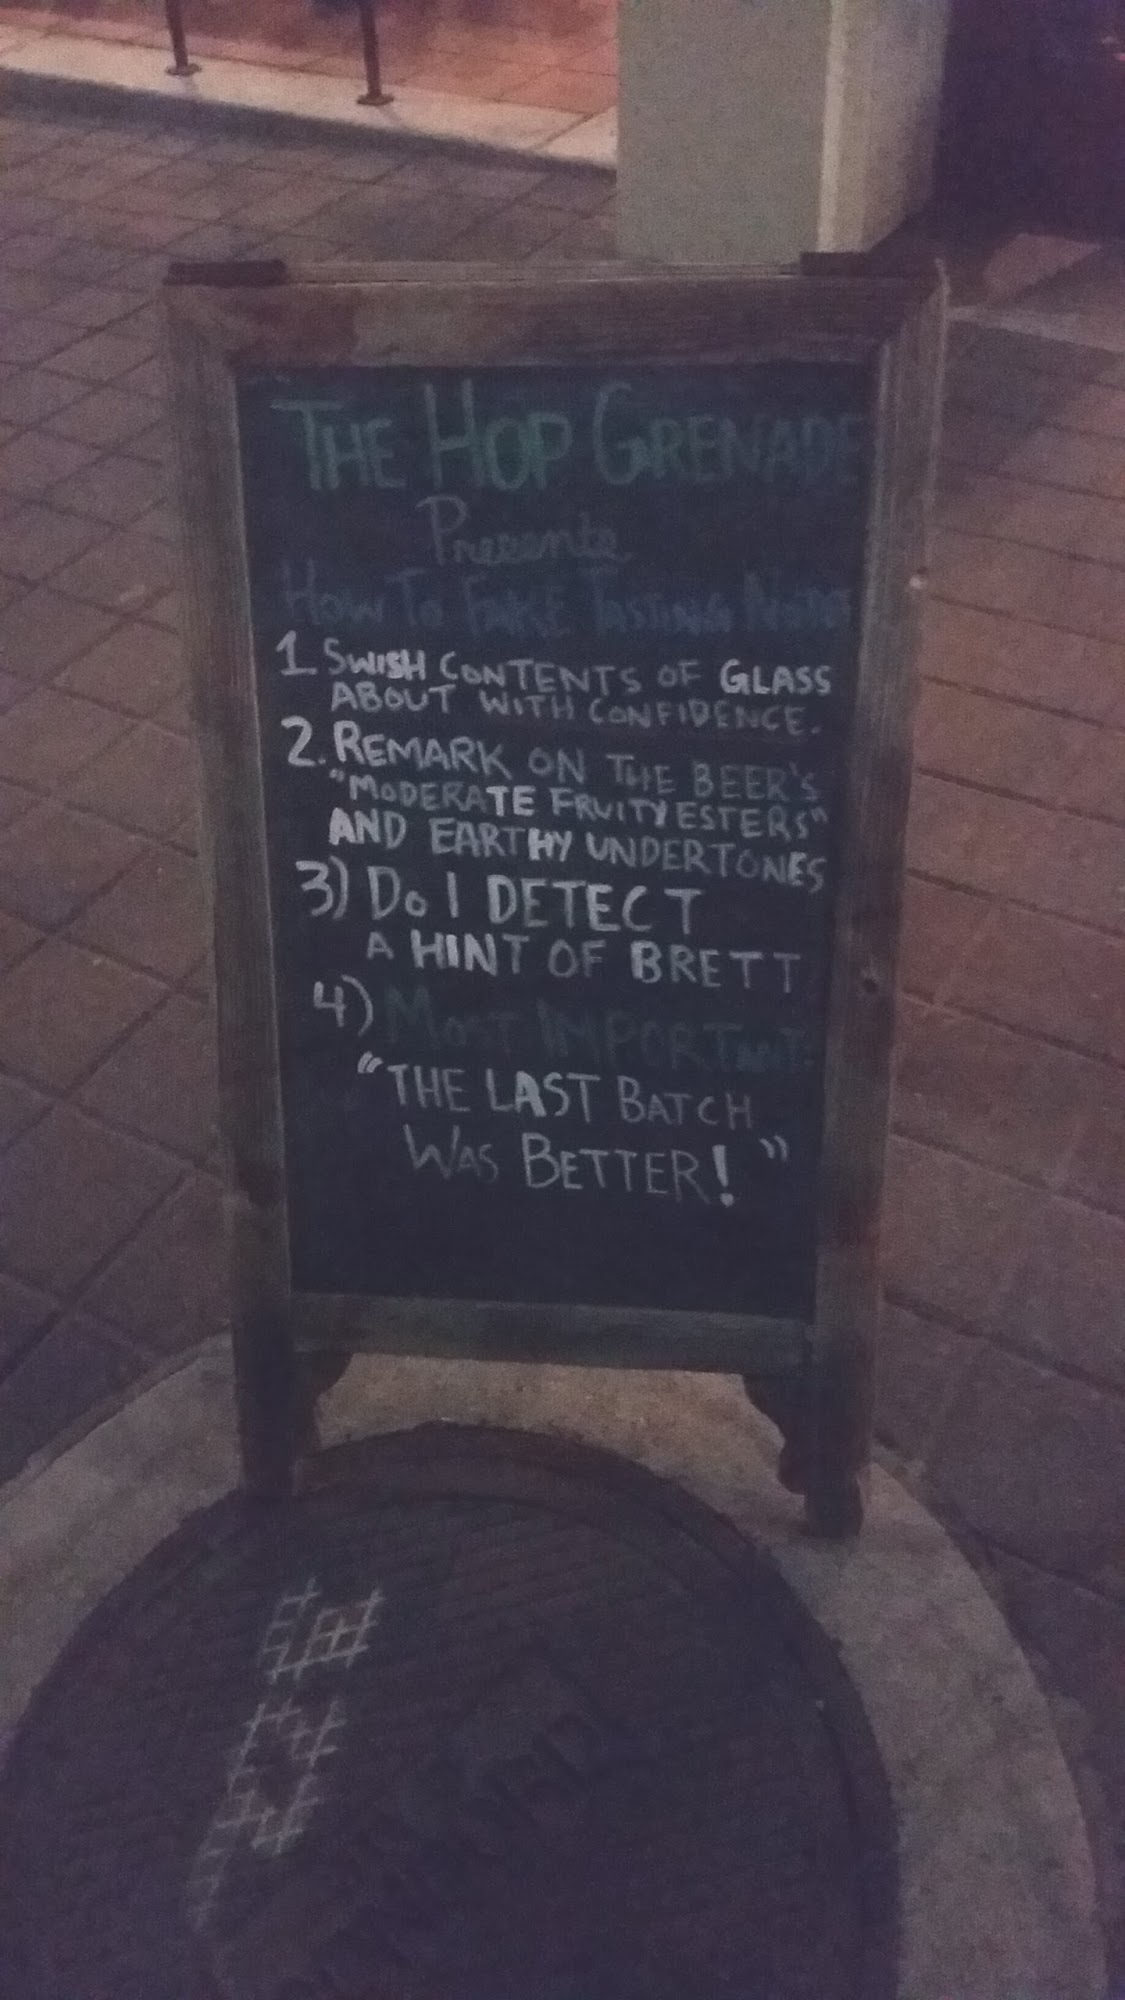 THE HOP GRENADE
Presents
HOW TO FAKE TASTING NOTES
1. SWISH CONTENTS OF GLASS
ABOUT WITH CONFIDENCE.
2. REMARK ON THE BEER'S
"MODERATE FRUITY ESTERS"
AND EARTHY UNDERTONES
3) DO I DETECT
A HINT OF BRETT
4) MOST IMPORTANT:
"THE LAST BATCH
WAS BETTER!"